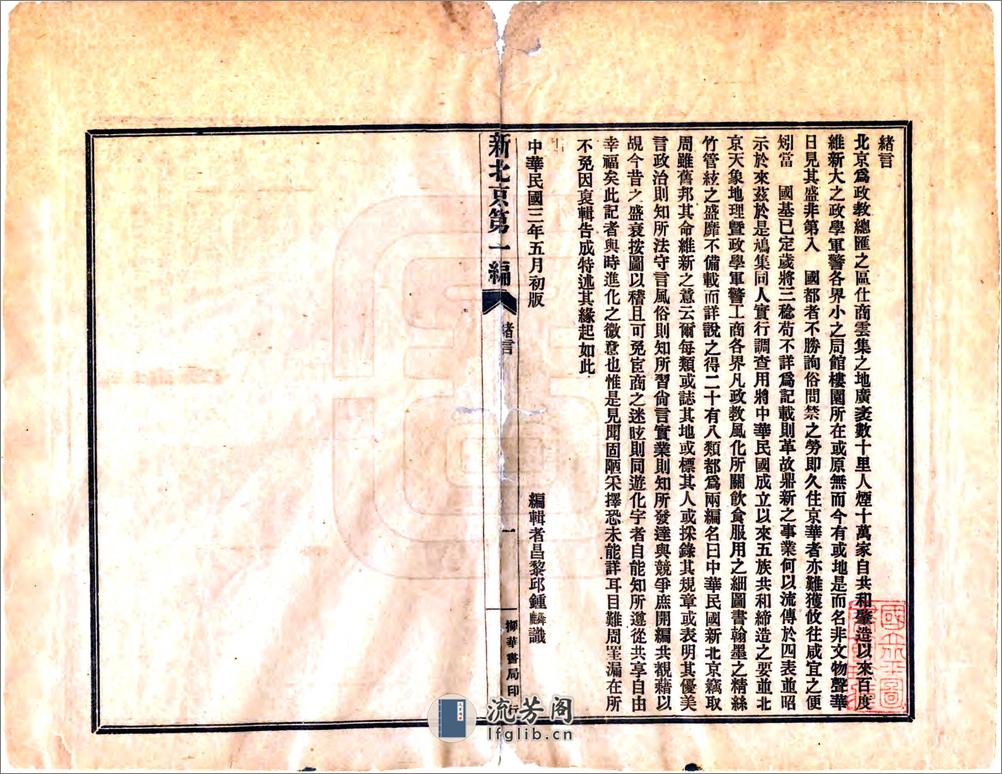 緒言
北京爲政敎總匯之區仕商雲集之地廣袤數十里人煙十萬家自共和肇造以來百度
維新大之政學軍警各界小之局館樓園所在或原無而今有或地是而名非文物聲華
日見其盛非第入　國都者不勝詢俗問禁之勞即久住京華者亦難獲攸往咸宜之便
矧當　國基已定歲將三稔苟不詳爲記載則革故鼎新之事業何以流傳於四表並昭
示於來茲於是鳩集同人實行調查用將中華民國成立以來五族共和締造之要並北
京天象地理曁政學軍警工商各界凡政敎風化所關飮食服用之細圖書翰墨之精絲
竹管絃之盛靡不備載而詳說之得二十有八類都爲兩編名曰中華民國新北京竊取
周雖舊邦其命維新之意云爾每類或誌其地或標其人或採錄其規章或表明其優美
言政治則知所法守言風俗則知所習尙言實業則知所發達與競爭庶開編共覩藉以
覘今昔之盛衰按圖以稽且可免宦商之迷眩則同遊化宇者自能知所遵從共享自由
幸福矣此記者與時進化之微意也惟是見聞固陋采擇恐未能詳耳目難周罣漏在所
不免因裒輯告成特述其緣起如此
中華民國三年五月初版　編輯者昌黎邱鍾麟識
新北京第一編　緒言　一　擷華書局印行
流芳阁
lfglib.cn